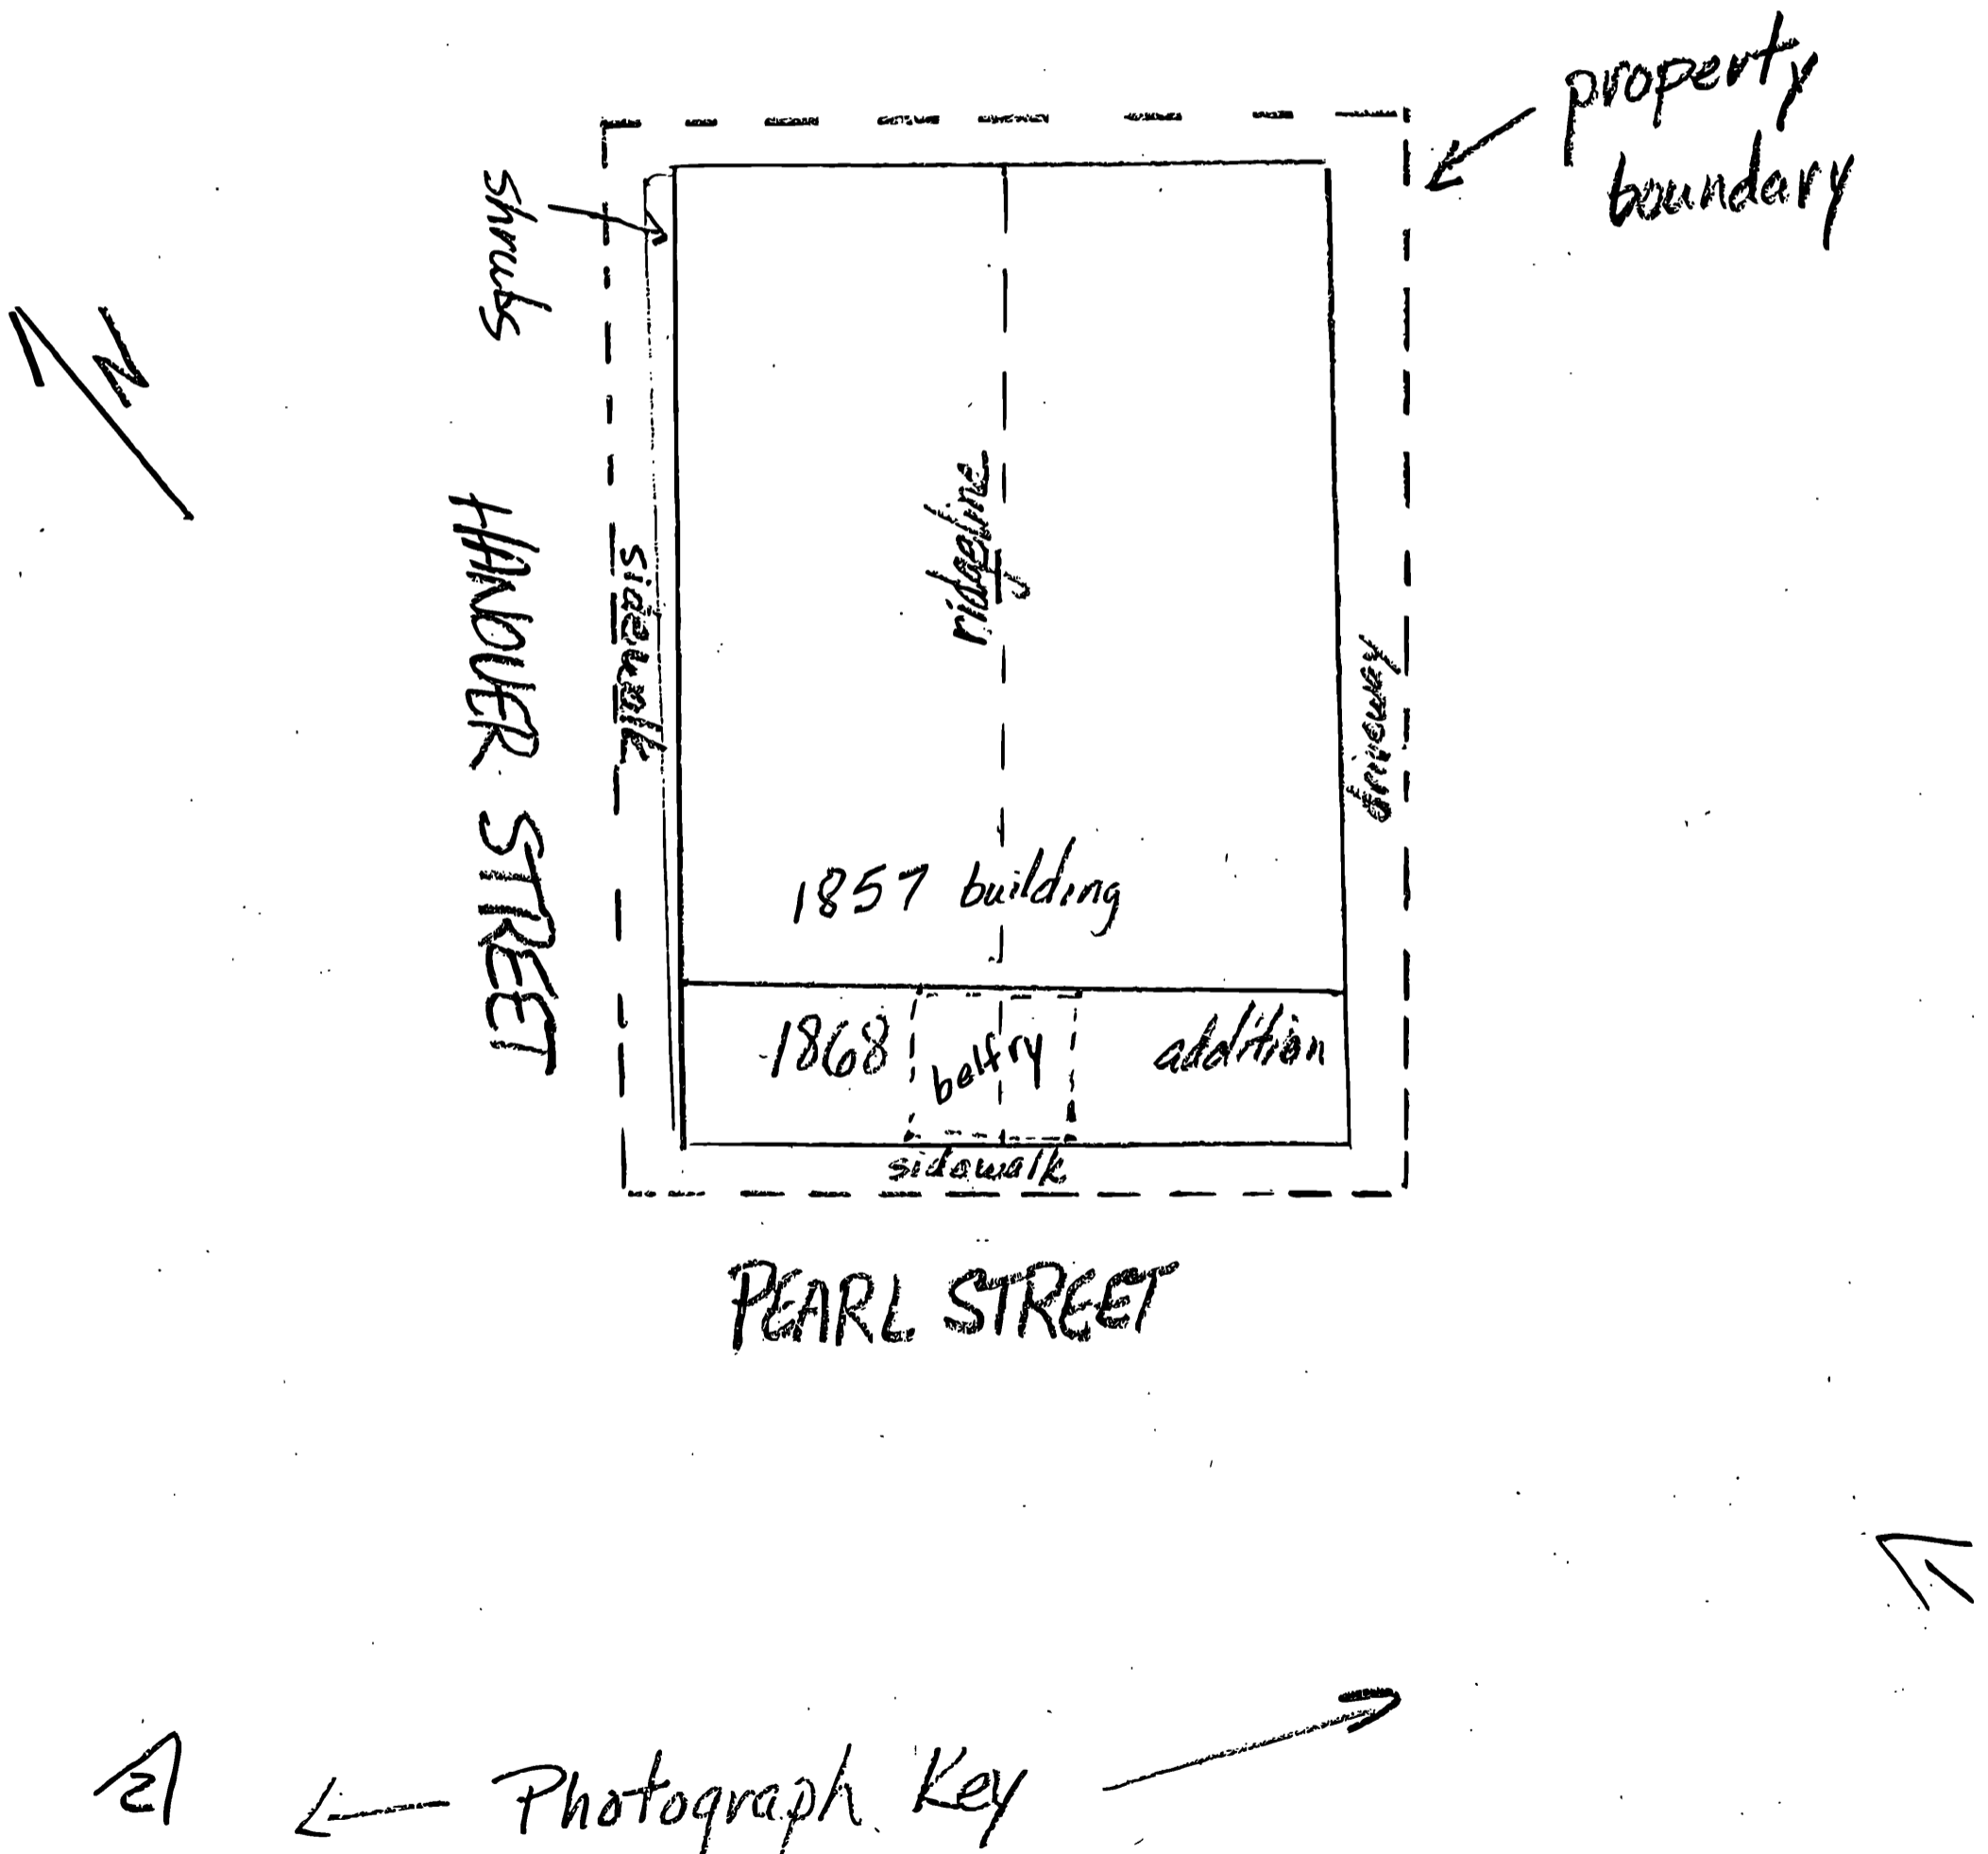 property
boundary
shrubs
N
HANOVER STREET
sidewalk
ridgeline
driveway
1857 building
1868 belfry addition
sidewalk
PEARL STREET
1
2
Photograph Key